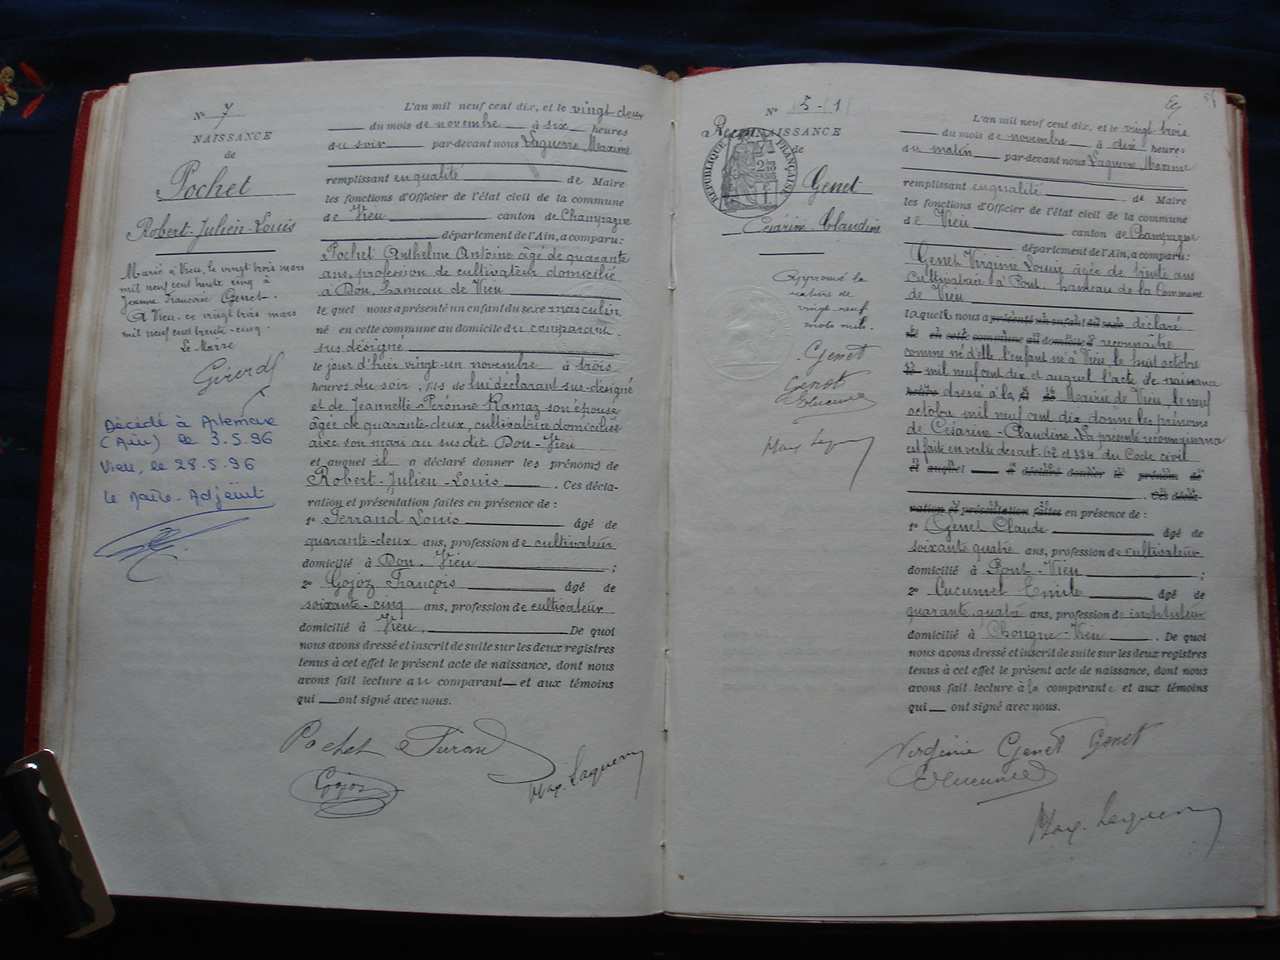 N° 7
NAISSANCE
de
Pochet
Robert-Julien-Louis
Marié à Vieu, le vingt trois mars
mil neuf cent trente cinq à
Jeanne Françoise Genet.
A Vieu, ce vingt trois mars
mil neuf cent trente-cinq.
Le Maire
Décédé à Artemare
(Ain) le 3.5.96
Vieu, le 28.5.96
Le Maire-Adjoint
L'an mil neuf cent dix, et le vingt deux
du mois de novembre à six heures
du soir par-devant nous Laguerre Maxime
remplissant en qualité de Maire
les fonctions d'Officier de l'état civil de la commune
de Vieu canton de Champagne
département de l'Ain, a comparu:
Pochet Anthelme Antoine âgé de quarante
ans, profession de cultivateur domicilié
à Don, hameau de Vieu
lequel nous a présenté un enfant du sexe masculin
né en cette commune au domicile du comparant
sus désigné
le jour d'hier vingt-un novembre à trois
heures du soir, fils de lui déclarant sus-désigné
et de Jeannette-Péronne Ramaz son épouse
âgée de quarante-deux, cultivatrice domiciliée
avec son mari au sus dit Don-Vieu
et auquel il a déclaré donner les prénoms de
Robert-Julien-Louis . Ces décla-
ration et présentation faites en présence de :
1° Ferrand Louis âgé de
quarante-deux ans, profession de cultivateur
domicilié à Don-Vieu ;
2° Gojoz François âgé de
soixante-cinq ans, profession de cultivateur
domicilié à Vieu, De quoi
nous avons dressé et inscrit de suite sur les deux registres
tenus à cet effet le présent acte de naissance, dont nous
avons fait lecture au comparant et aux témoins
qui ont signé avec nous.
Pochet
Gojoz
Max. Laguerre
N° 5-1
Reconnaissance
de
RÉPUBLIQUE FRANÇAISE
Genet
Césarine Claudine
Approuvé la
rature de
vingt neuf
mots nuls.
Genet
Genet
Max Laguerre
L'an mil neuf cent dix, et le vingt trois
du mois de novembre à dix heures
du matin par-devant nous Laguerre Maxime
remplissant en qualité de Maire
les fonctions d'Officier de l'état civil de la commune
de Vieu canton de Champagne
département de l'Ain, a comparu:
Genet Virginie Louise âgée de trente ans
cultivatrice à Pont, hameau de la Commune
de Vieu
laquelle nous a présenté un enfant du sexe déclaré
né en cette commune au domicile reconnaître
comme né d'elle l'enfant né à Vieu le huit octobre
mil neuf cent dix et auquel l'acte de naissance
dressé à la Mairie de Vieu le neuf
octobre mil neuf cent dix donne les prénoms
de Césarine-Claudine. La présente reconnaissance
est faite en vertu des art. 62 et 334 du Code civil
et auquel a déclaré donner les prénoms de
. Ces décla-
ration et présentation faites en présence de :
1° Genet Claude âgé de
soixante quatre ans, profession de cultivateur
domicilié à Pont-Vieu ;
2° Cucuunet Emile âgé de
quarante quatre ans, profession de instituteur
domicilié à Chongne-Vieu . De quoi
nous avons dressé et inscrit de suite sur les deux registres
tenus à cet effet le présent acte de naissance, dont nous
avons fait lecture à la comparante et aux témoins
qui ont signé avec nous.
Virginie Genet Genet
Max. Laguerre